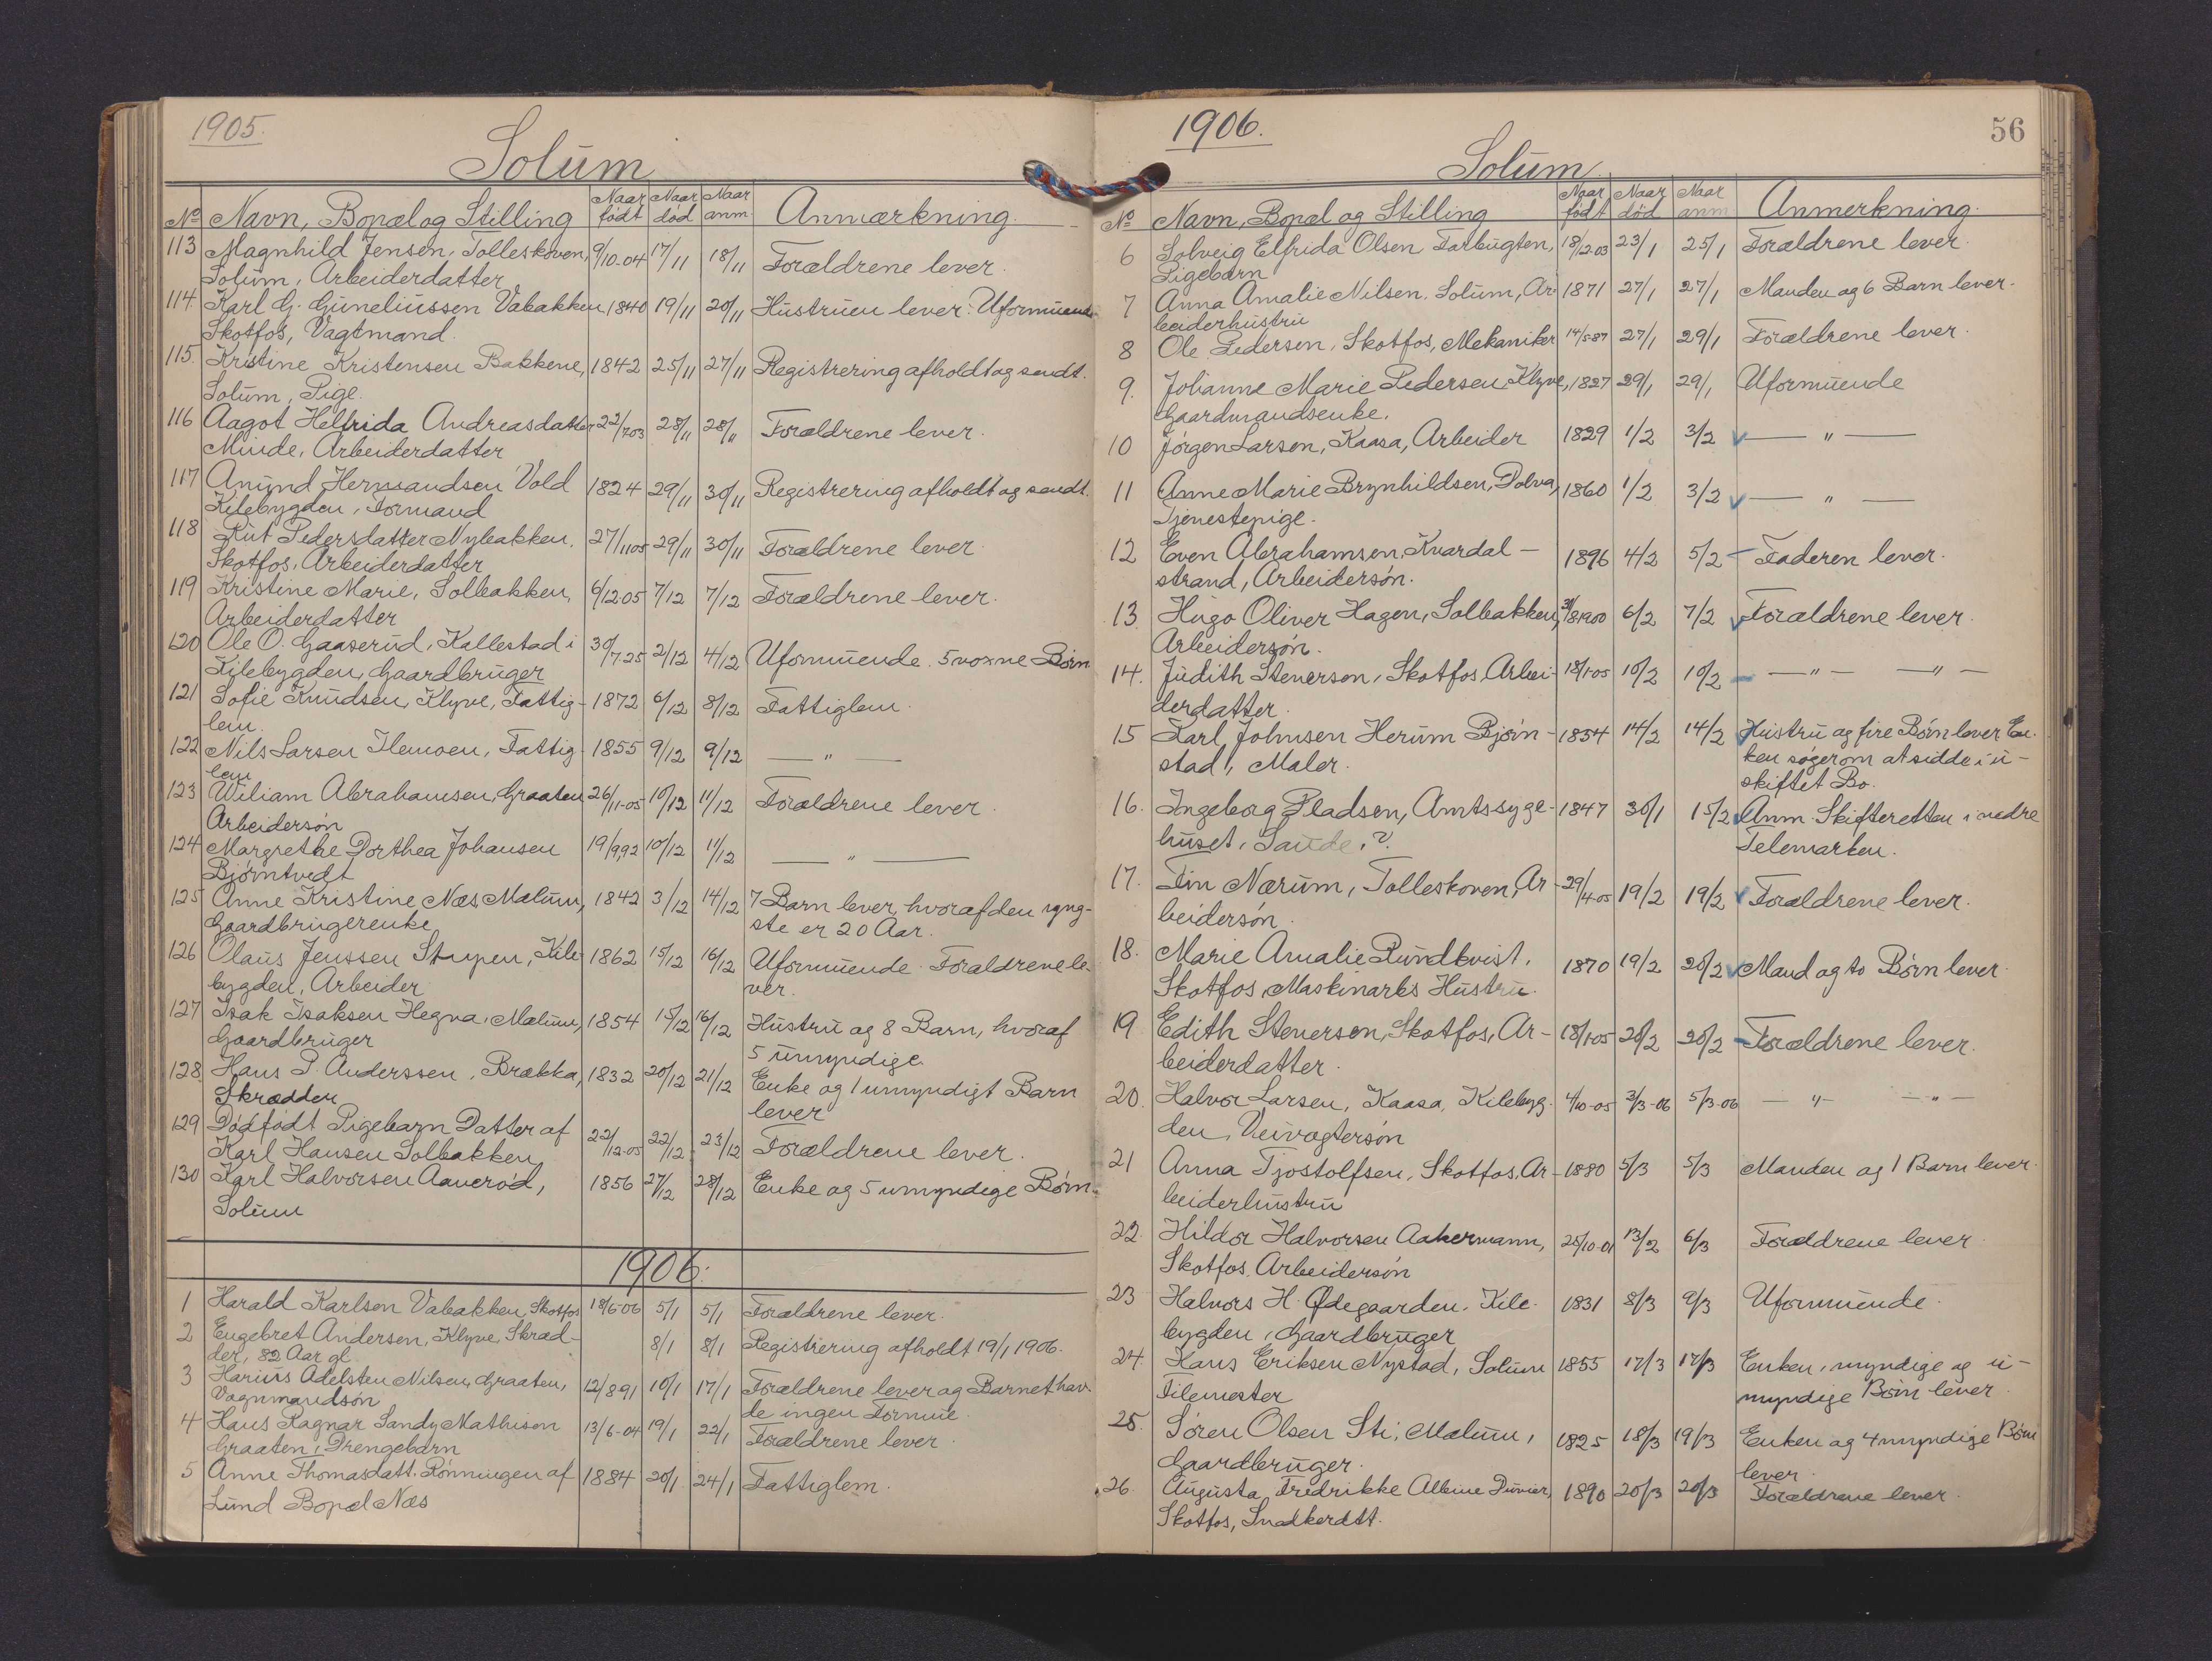 1905.
Solum
No Navn, Bopæl og Stilling Naar født Naar død Naar anm. Anmærkning.
113 Magnhild Jensen, Tolleskoven, 9/10-04 17/11 18/11 Forældrene lever.
Solum, Arbeiderdatter
114 Karl G. Guneliussen Vabakken 1840 19/11 20/11 Hustruen lever. Uformuende
Skotfos, Vagtmand.
115. Kristine Kristensen Bakkene, 1842 25/11 27/11 Registrering afholdt og sendt.
Solum, Pige.
116 Aagot Helfrida Andreasdatter 22/7 03 28/11 28/11 Forældrene lever.
Minde, Arbeiderdatter
117 Anund Hermandsen Vold 1824 29/11 30/11 Registrering afholdt og sendt.
Kilebygden, Formand
118 Rut Pedersdatter Nybakken. 27/11 05 29/11 30/11 Forældrene lever.
Skotfos, Arbeiderdatter
119 Kristine Marie, Solbakken, 6/12 05 7/12 7/12 Forældrene lever.
Arbeiderdatter
120 Ole O. Gaaserud, Kallestad i 30/7-25 2/12 4/12 Uformuende. 5 voxne Børn
Kilebygden, Gaardbruger
121 Sofie Knudsen, Klyve, Fattig- 1872 6/12 8/12 Fattiglem.
lem.
122 Nils Larsen Ilemoen, Fattig- 1855 9/12 9/12 — " —
lem
123 Wiliam Abrahamsen, Graaten 26/11-05 10/12 11/12 Forældrene lever.
Arbeidersøn
124 Margrethe Dorthea Johansen 19/9 92 10/12 11/12 — " —
Bjørntvedt
125 Anne Kristine Næs, Mælum, 1842 3/12 14/12 7 Barn lever, hvoraf den yng-
Gaardbrugerenke ste er 20 Aar.
126 Olaus Jenssen Stupen, Kile- 1862 15/12 16/12 Uformuende. Forældrene le-
bygden, Arbeider ver.
127 Isak Isaksen Hegna, Mælum, 1854 15/12 16/12 Hustru og 8 Barn, hvoraf
Gaardbruger 5 umyndige.
128 Hans P. Anderssen, Brækka, 1832 20/12 21/12 Enke og 1 umyndigt Barn
Skrædder lever
129 Dødfødt Pigebarn Datter af 22/12-05 22/12 23/12 Forældrene lever.
Karl Hansen Solbakken
130 Karl Halvorsen Aaverød, 1856 27/12 28/12 Enke og 5 umyndige Børn.
Solum
1906.
1 Harald Karlsen Vabakken, Skotfos 18/6-06 5/1 5/1 Forældrene lever.
2 Engebret Andersen, Klyve Skræd- 8/1 8/1 Registrering afholdt 19/1 1906.
der, 82 Aar gl.
3 Harius Adelsten Nilsen, Graaten, 12/8 91 10/1 17/1 Forældrene lever og Barnet hav-
Vognmandsøn de ingen Formue.
4 Hans Ragnar Sandy Mathison 13/6-04 19/1 22/1 Forældrene lever.
Graaten, Drengebarn
5 Anne Thomasdatt. Rønningen af 1884 20/1 24/1 Fattiglem.
Lund Bopæl Næs
1906.
56
Solum.
No Navn, Bopæl og Stilling Naar født Naar død Naar anm Anmerkning.
6 Solveig Elfrida Olsen Farbugten, 18/12-03 23/1 25/1 Forældrene lever.
Pigebarn
7 Anna Amalie Nilsen. Solum, Ar- 1871 27/1 27/1 Manden og 6 Barn lever.
beiderhustru
8 Ole Pedersen, Skotfos, Mekaniker 14/5-87 27/1 29/1 Forældrene lever.
9. Johanne Marie Pedersen Klyve, 1827 29/1 29/1 Uformuende
Gaardmandsenke.
10 Jørgen Larsen, Kaasa, Arbeider 1829 1/2 3/2 — " —
11 Anne Marie Brynhildsen, Dolva, 1860 1/2 3/2 — " —
Tjenestepige.
12 Even Abrahamsen, Kvardal- 1896 4/2 5/2 Faderen lever.
strand, Arbeidersøn.
13 Hugo Oliver Hagen, Solbakken, 31/8 1900 6/2 7/2 Forældrene lever.
Arbeidersøn.
14. Judith Stenersen, Skotfos, Arbei- 18/1-05 10/2 10/2 — " — — " —
derdatter.
15 Karl Johnsen Herum Bjørn- 1854 14/2 14/2 Hustru og fire Børn lever. En-
stad, Maler. ken søger om at sidde i u-
skiftet Bo.
16. Ingeborg Pladsen, Amtssyge- 1847 30/1 15/2 Anm. Skifteretten i nedre
huset, Saude, ? Telemarken.
17. Fin Nærum, Tolleskoven, Ar- 29/4-05 19/2 19/2 Forældrene lever.
beidersøn.
18. Marie Amalie Rundkvist, 1870 19/2 20/2 Mand og to Børn lever.
Skotfos, Maskinarbs Hustru.
19 Edith Stenersen, Skotfos, Ar- 18/1-05 20/2 20/2 Forældrene lever.
beiderdatter.
20. Halvor Larsen, Kaasa, Kilebyg- 4/10-05 3/3-06 5/3-06 — " — — " —
den, Veivogtersøn
21 Anna Tjostolfsen, Skotfos, Ar- 1880 5/3 5/3 Manden og 1 Barn lever.
beiderhustru
22. Hildor Halvorsen Aakermann, 25/10-01 13/2 6/3 Forældrene lever
Skotfos, Arbeidersøn
23 Halvors H. Ødegaarden, Kile- 1831 8/3 9/3 Uformuende.
bygden, Gaardbruger
24. Hans Eriksen Nystad, Solum 1855 17/3 17/3 Enken, myndige og u-
Filemester myndige Børn lever.
25. Søren Olsen Sti, Mælum, 1825 18/3 19/3 Enken og 4 myndige Børn
Gaardbruger. lever.
26. Augusta Fredrikke Albine Duvier, 1890 20/3 20/3 Forældrene lever.
Skotfos, Snedkerdtt.